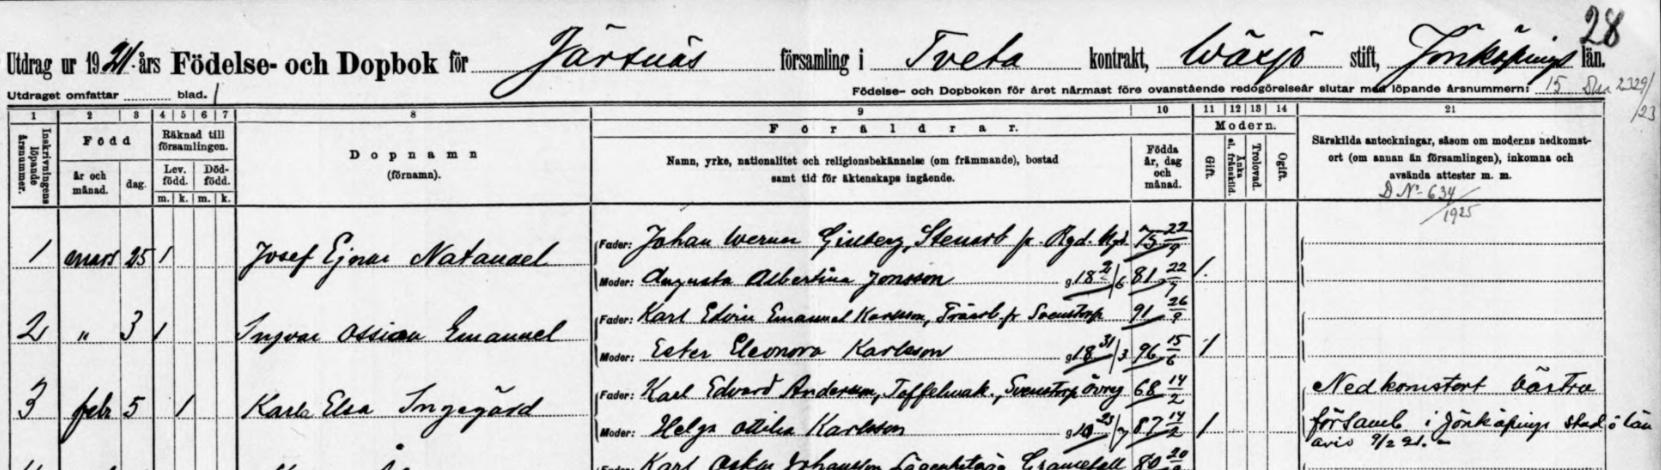 28
Utdrag ur 1921 års Födelse- och Dopbok för Järsnäs församling i Tveta kontrakt, Wäxjö stift, Jönköpings län.
Utdraget omfattar blad. Födelse- och Dopboken för året närmast före ovanstående redogörelseår slutar med löpande årsnummern: 15
1 2 3 4 5 6 7 8 9 10 11 12 13 14 21
Inskrivningens löpande årsnummer.
Född
år och månad. dag.
Räknad till församlingen.
Lev. född. Död- född.
m. k. m. k.
Dopnamn
(förnamn).
Föräldrar.
Namn, yrke, nationalitet och religionsbekännelse (om främmande), bostad
samt tid för äktenskaps ingående.
Födda år, dag och månad.
Modern.
Gift. Änka el. frånskild. Trolovad. Ogift.
Särskilda anteckningar, såsom om moderns nedkomst-
ort (om annan än församlingen), inkomna och
avsända attester m. m.
D No 634/1925
1 mars 25 1 Josef Ejnar Natanael Fader: Johan Werner 75 22/9
Moder: Augusta Albertina Jonsson g. 18 2/6 81 22/7 1
2 " 3 1 Ingvar Ossian Emanuel Fader: Karl Edvin Emanuel Karlsson, Träarb. fr Svenstorp 91 26/9
Moder: Ester Eleonora Karlsson g. 18 31/3 96 15/6 1
3 febr 5 1 Karla Elsa Ingegärd Fader: Karl Edvard Andersson, Svenstorp övreg 68 14/2
Moder: Helga Ottilia Karlsson g. 23/7 87 14/2 1
Nedkomstort Västra
församl. i Jönköpings stad o län
avis 9/2 21.
Karl Oskar Johansson 80